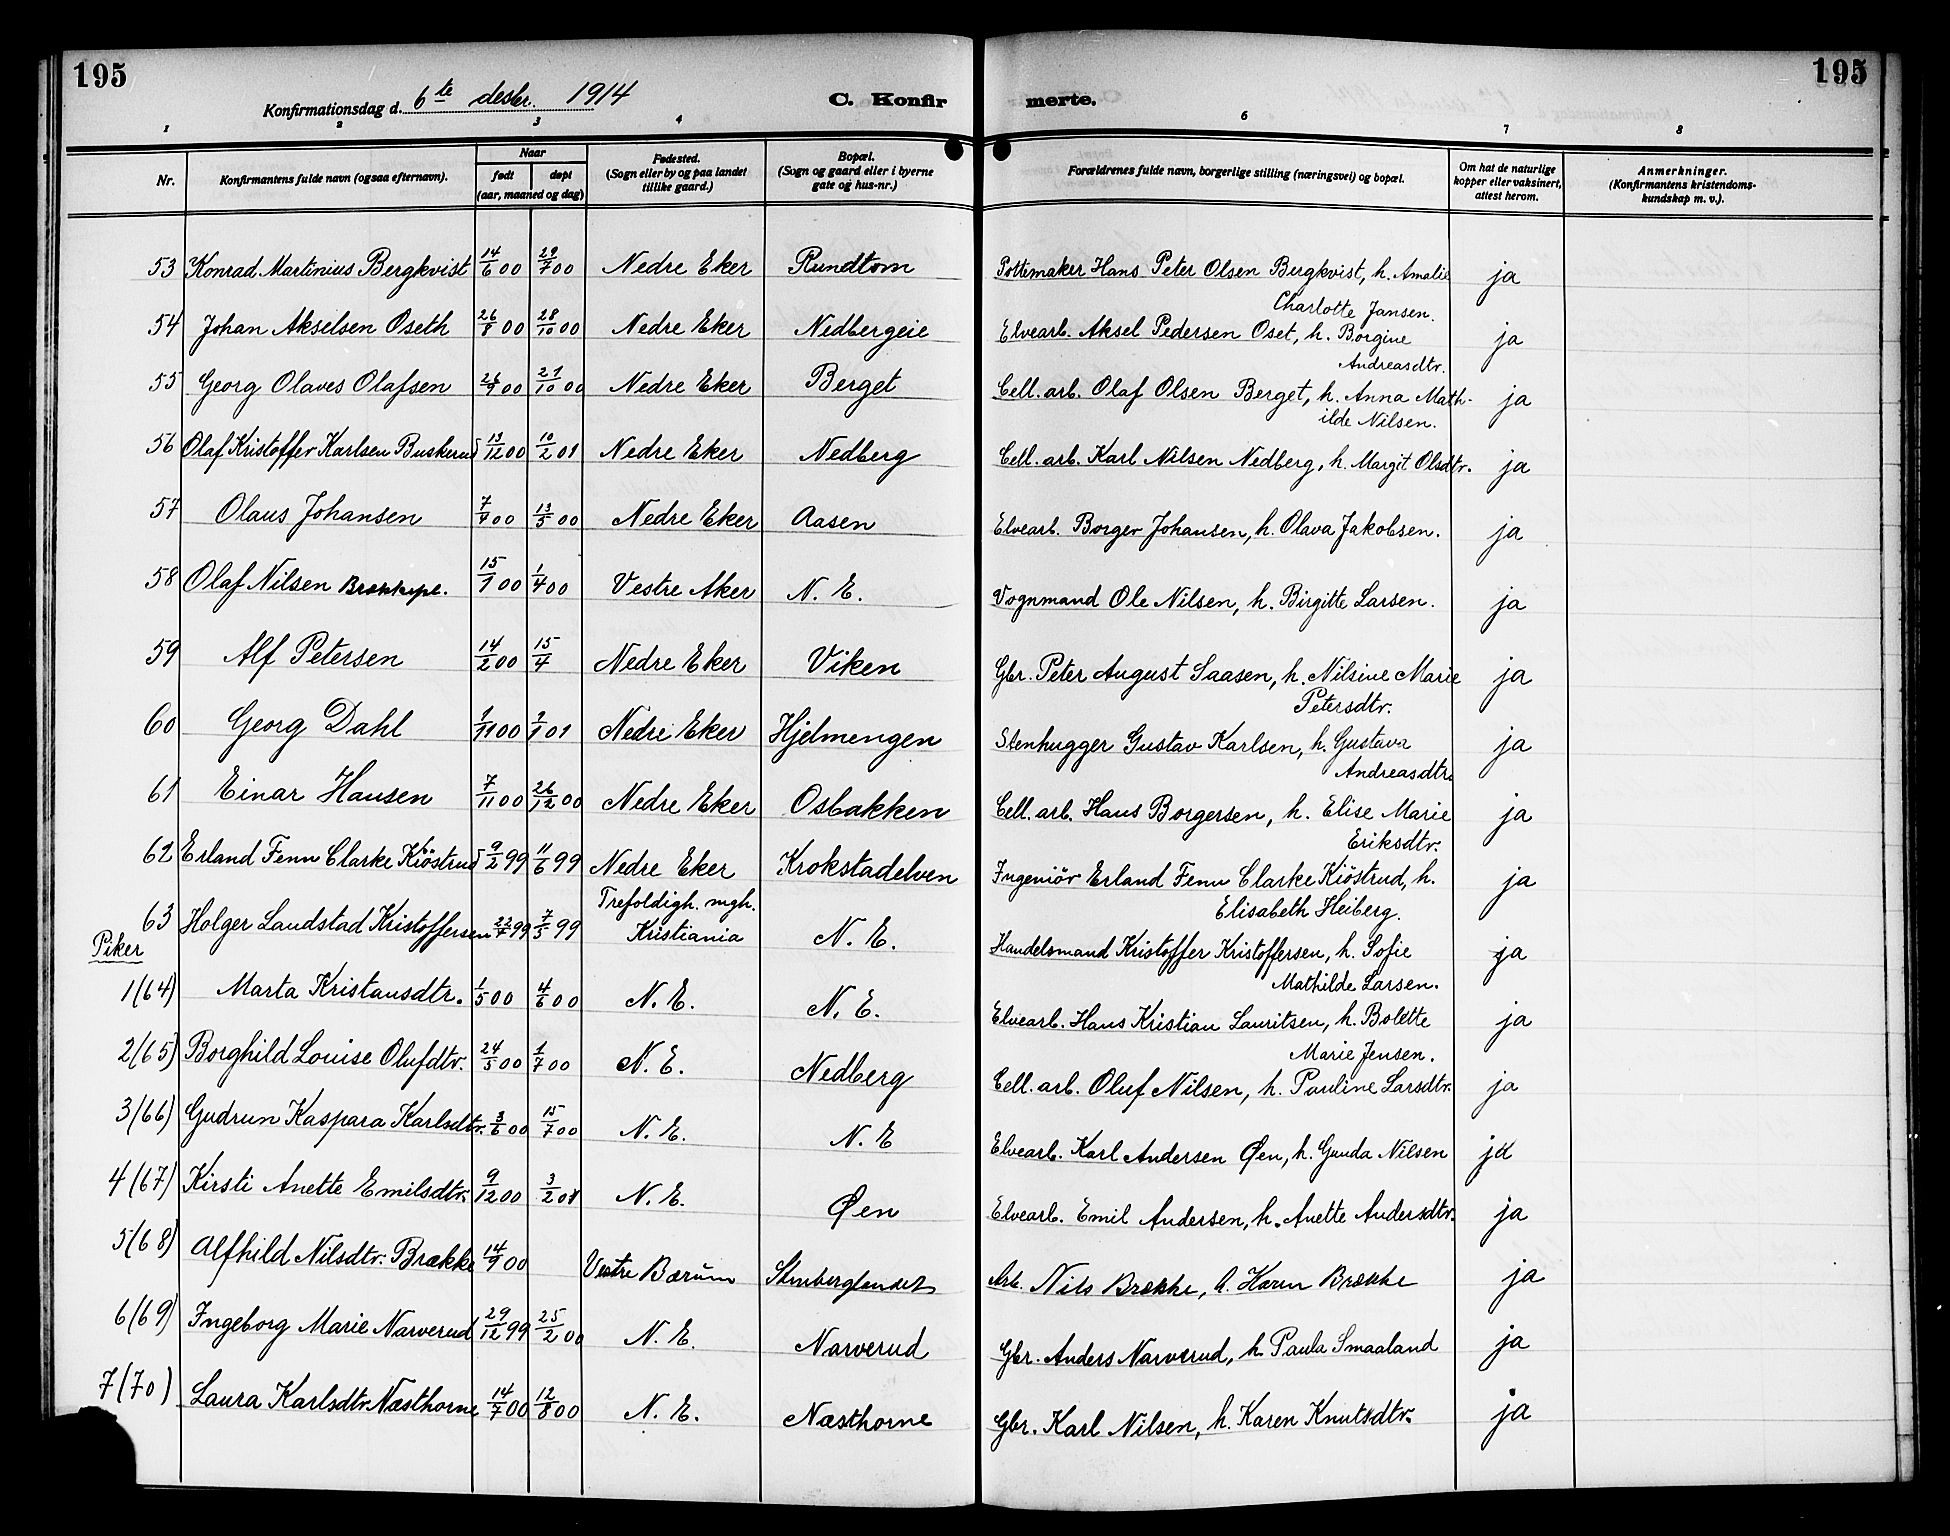 195
195
Konfirmationsdag d. 6te desbr. 1914
C. Konfir
merte.
1 2 3 4 6 7 8
Nr.
Konfirmantens fulde navn (ogsaa efternavn).
Naar
født
døpt
(aar, maaned og dag)
Fødested.
(Sogn eller by og paa landet
tillike gaard.)
Bopæl.
(Sogn og gaard eller i byerne
gate og hus-nr.)
Forældrenes fulde navn, borgerlige stilling (næringsvei) og bopæl.
Om hat de naturlige
kopper eller vaksinert,
attest herom.
Anmerkninger.
(Konfirmantens kristendoms-
kundskap m. v.).
53 Konrad Martinius Bergkvist 14/6 00 29/7 00 Nedre Eker Rundtom Pottemaker Hans Peter Olsen Bergkvist, h. Amalie ja
Charlotte Jansen.
54 Johan Akselsen Oseth 26/8 00 28/10 00 Nedre Eker Nedbergeie Elvearb. Aksel Pedersen Oset, h. Borgine ja
Andreasdtr.
55 Georg Olaves Olafsen 26/9 00 21/10 00 Nedre Eker Berget Cell. arb. Olaf Olsen Berget, h. Anna Math- ja
ilde Nilsen.
56 Olaf Kristoffer Karlsen Buskerud 13/12 00 10/2 01 Nedre Eker Nedberg Cell. arb. Karl Nilsen Nedberg, h. Margit Olsdtr. ja
57 Olaus Johansen 7/4 00 13/5 00 Nedre Eker Aasen Elvearb. Borger Johansen, h. Olava Jakobsen. ja
58 Olaf Nilsen 15/1 00 1/4 00 Vestre Aker N. E. Vognmand Ole Nilsen, h. Birgitte Larsen. ja
59 Alf Petersen 14/2 00 15/4 Nedre Eker Viken Gbr. Peter August Saasen, h. Nilsine Marie ja
Petersdtr.
60 Georg Dahl 1/11 00 1/1 01 Nedre Eker Hjelmengen Stenhugger Gustav Karlsen, h. Gustava ja
Andreasdtr.
61 Einar Hansen 7/11 00 26/12 00 Nedre Eker Osbakken Cell. arb. Hans Borgersen, h. Elise Marie ja
Eriksdtr.
62 Erland Fenn Clarke Kiöstrud 9/2 99 11/6 99 Nedre Eker Krokstadelven Ingeniör Erland Fenn Clarke Kiöstrud, h. ja
Elisabeth Heiberg.
63 Holger Landstad Kristoffersen 22/4 99 7/5 99 Trefoldigh. mgh. Kristiania N. E. Handelsmand Kristoffer Kristoffersen, h. Sofie ja
Mathilde Larsen.
Piker
1(64) Marta Kristansdtr. 1/5 00 4/6 00 N. E. N. E. Elvearb. Hans Kristian Lauritsen, h. Bolette ja
Marie Jensen.
2(65) Borghild Louise Olufdtr. 24/5 00 1/7 00 N. E. Nedberg Cell. arb. Oluf Nilsen, h. Pauline Larsdtr. ja
3(66) Gudrun Kaspara Karlsdtr. 3/6 00 15/7 00 N. E. N. E Elvearb. Karl Andersen Øen, h. Gunda Nilsen ja
4(67) Kirsti Anette Emilsdtr. 9/12 00 3/2 01 N. E. Øen Elvearb. Emil Andersen, h. Anette Andersdtr. ja
5(68) Alfhild Nilsdtr. Brække 14/9 00 Vestre Bærum Arb. Nils Brække, h. Karen Brække ja
6(69) Ingeborg Marie Narverud 29/12 99 25/2 00 N. E. Narverud Gbr. Anders Narverud, h. Paula Smaaland ja
7(70) Laura Karlsdtr. Næsthorne 14/7 00 12/8 00 N. E. Næsthorne Gbr. Karl Nilsen, h. Karen Knutsdtr. ja